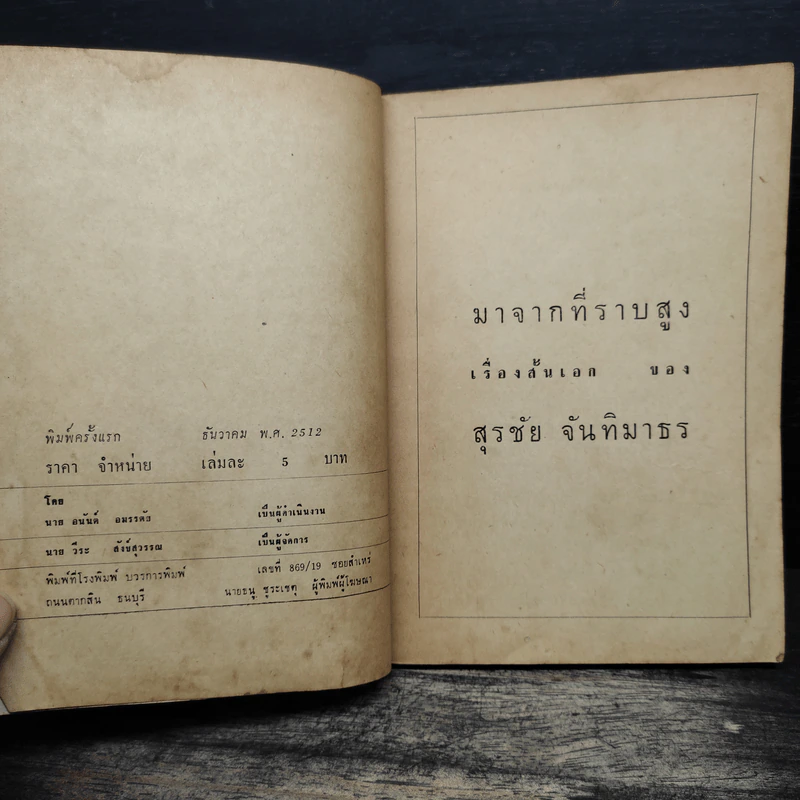 พิมพ์ครั้งแรก ธันวาคม พ.ศ. 2512
ราคา จำหน่าย เล่มละ 5 บาท
โดย
นาย อนันต์ อมรรตัย เป็นผู้ดำเนินงาน
นาย วีระ สังข์สุวรรณ เป็นผู้จัดการ
พิมพ์ที่โรงพิมพ์ บวรการพิมพ์ เลขที่ 869/19 ซอยสำเหร่
ถนนตากสิน ธนบุรี นายธนู ชูระเชตุ ผู้พิมพ์ผู้โฆษณา
มาจากที่ราบสูง
เรื่องสั้นเอก ของ
สุรชัย จันทิมาธร